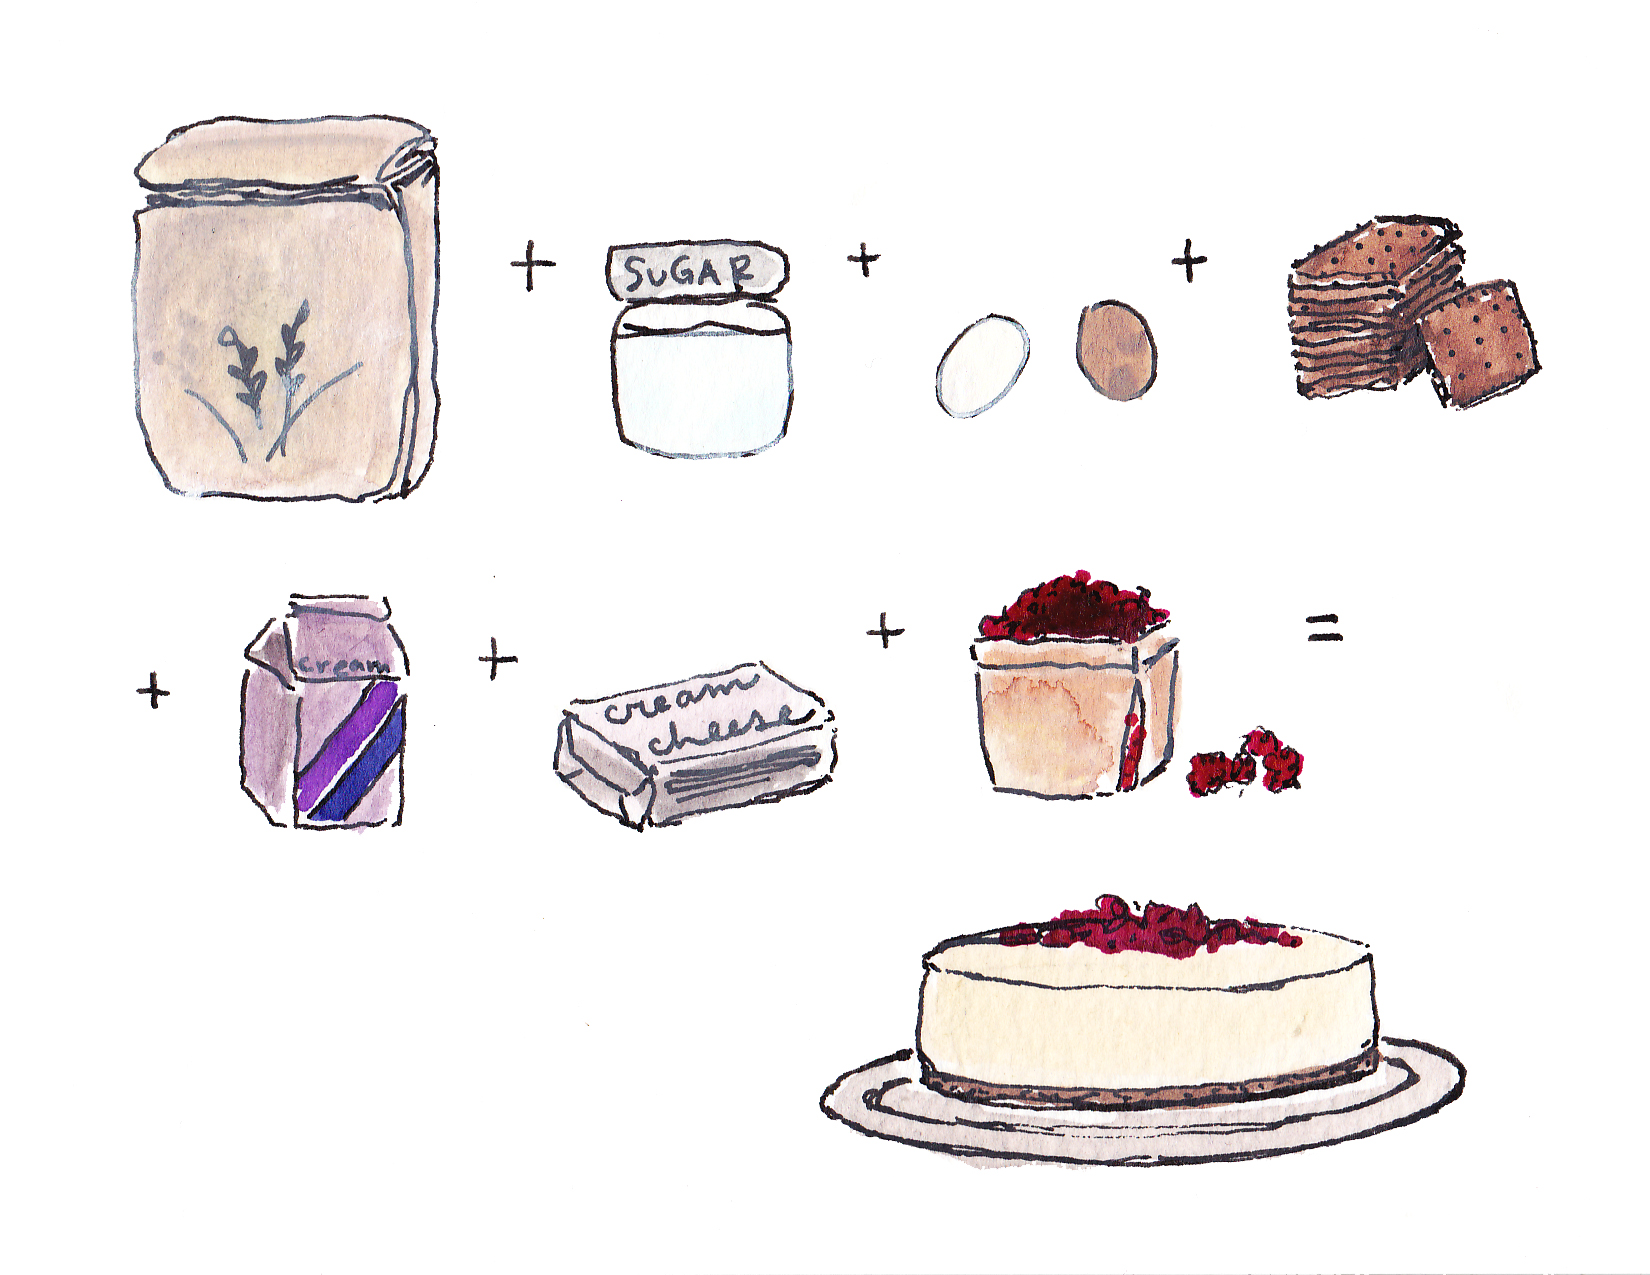 + SUGAR + +
+ cream + cream
cheese + =